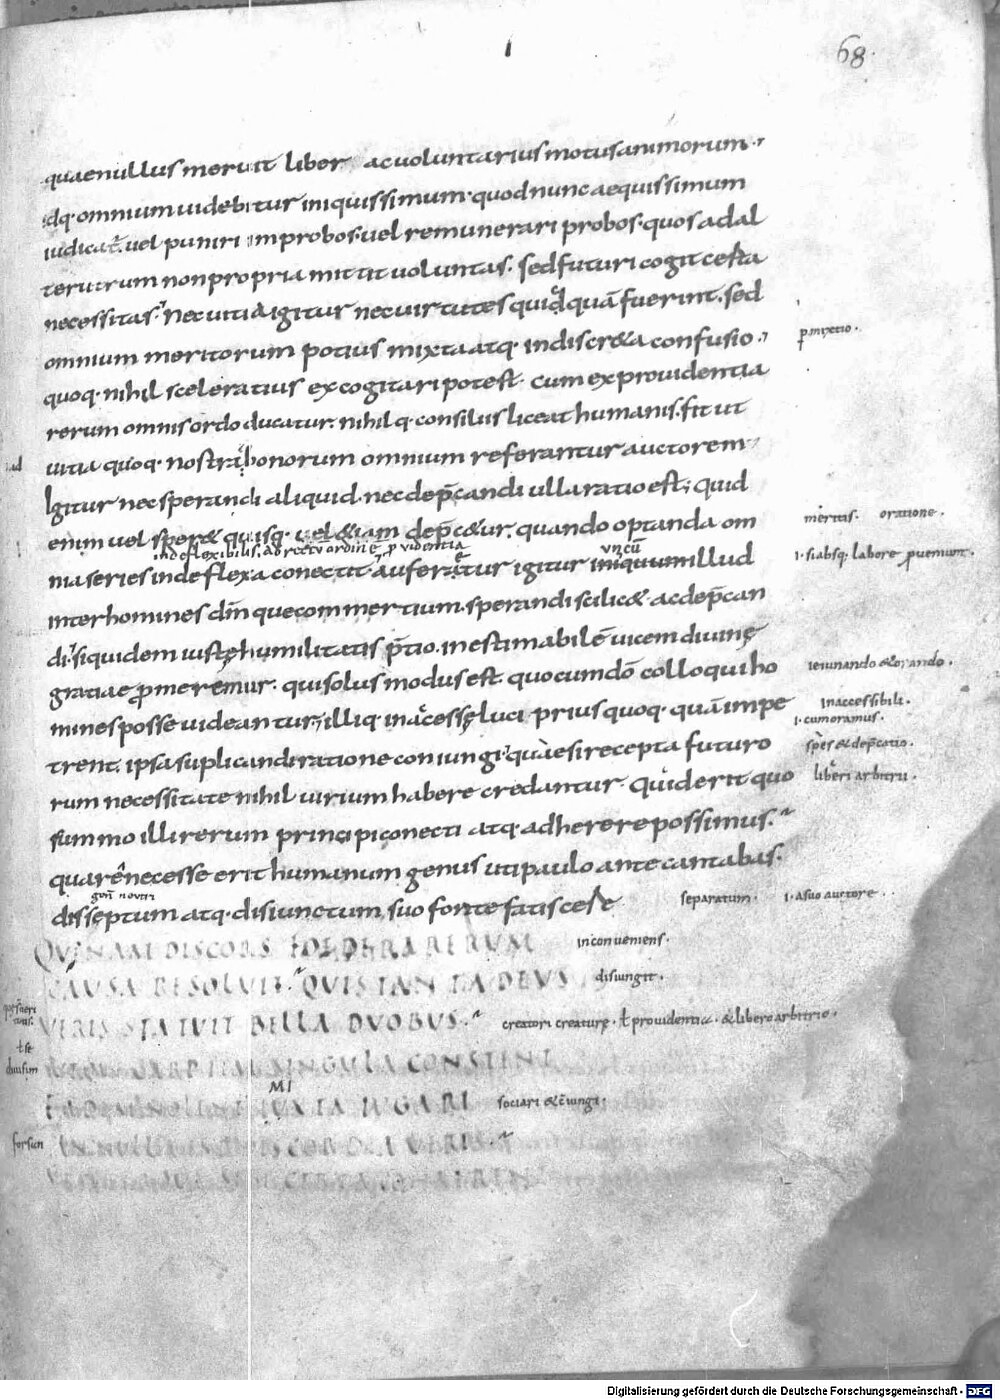 68
quae nullus meruit liber ac voluntarius motus animorum.
idq· omnium uidebitur iniquissimum· quod nunc aequissimum
iudicat̄· uel puniri improbos· uel remunerari probos· quos ad al
terutrum non propria mittit uoluntas· sed futuri cogit certa
necessitas· Nec uitia igitur nec uirtutes quidquā fuerint· sed
omnium meritorum potius mixta atq· indiscr&a confusio·
p̄mixtio·
quoq· nihil sceleratius excogitari potest· cum ex prouidentia
rerum omnis ordo ducatur· nihilq· consiliis liceat humanis· fit ut
uitia quoq· nostra bonorum omnium referantur auctorem
Igitur nec sperandi aliquid· nec dep̄candi ulla ratio est· quid
enim uel sper& quisq· uel &iam dep̄c&ur· quando optanda om
meritis· oratione·
indeflexibilis· ab recto ordine prouidentia
nia series indeflexa conectit auferetur igitur iniquum illud
unicū
i· si absq· labore proueniunt·
inter homines dm̄que commertium· sperandi scilic& ac dep̄can
di· siquidem iustę humilitatis p̄tio· inestimabilē uicem diuinę
gratiae promeremur· qui solus modus est quo cum dō colloqui ho
ieiunando & orando·
mines posse uideantur· illiq· inaccessę luci prius quoq· quā impe
inaccessibili·
i· cum oramus·
trent· ipsa suplicandi ratione coniungi· quae si recepta futuro
spes & dep̄catio·
rum necessitate nihil uirium habere credantur· Quid erit quo
liberi arbitrii·
summo illi rerum principi conecti atq· adherere possimus·
quare necesse erit humanum genus uti paulo ante cantabas·
disseptum atq· disiunctum suo fonte fatiscere
separatum· i· a suo auctore·
QUENAM DISCORS FOEDERA RERUM
inconueniens·
CAUSA RESOLUIT· QUIS TANTA DEUS
disiungit·
UERIS STATUIT BELLA DUOBUS·
creatori creaturę· ł prouidentię· & libero arbitrio·
SINGULA CONSTENT
MI
IUGARI
sociari & c̄iungi·
forsan
NULLA DISCORDIA UERIS·
Digitalisierung gefördert durch die Deutsche Forschungsgemeinschaft - DFG